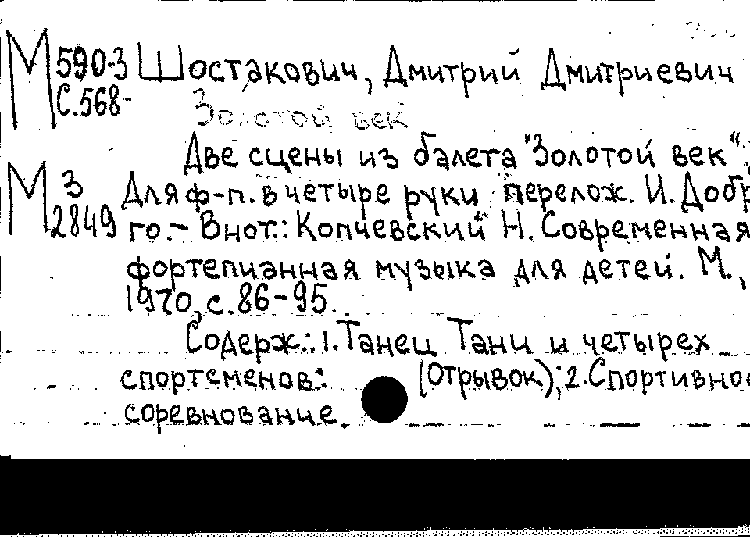 М 590-3 Шостакович, Дмитрий Дмитриевич
С.568-
Золотой век
Две сцены из балета "Золотой век".
М 3 Для ф-п. в четыре руки перелож. И. Добр
2849 го.- В нот.: Копчевский Н. Современная
фортепианная музыка для детей. М.,
1970, с. 86-95.
Содерж.: 1. Танец Тани и четырех
спортсменов: (Отрывок); 2. Спортивное
соревнование.